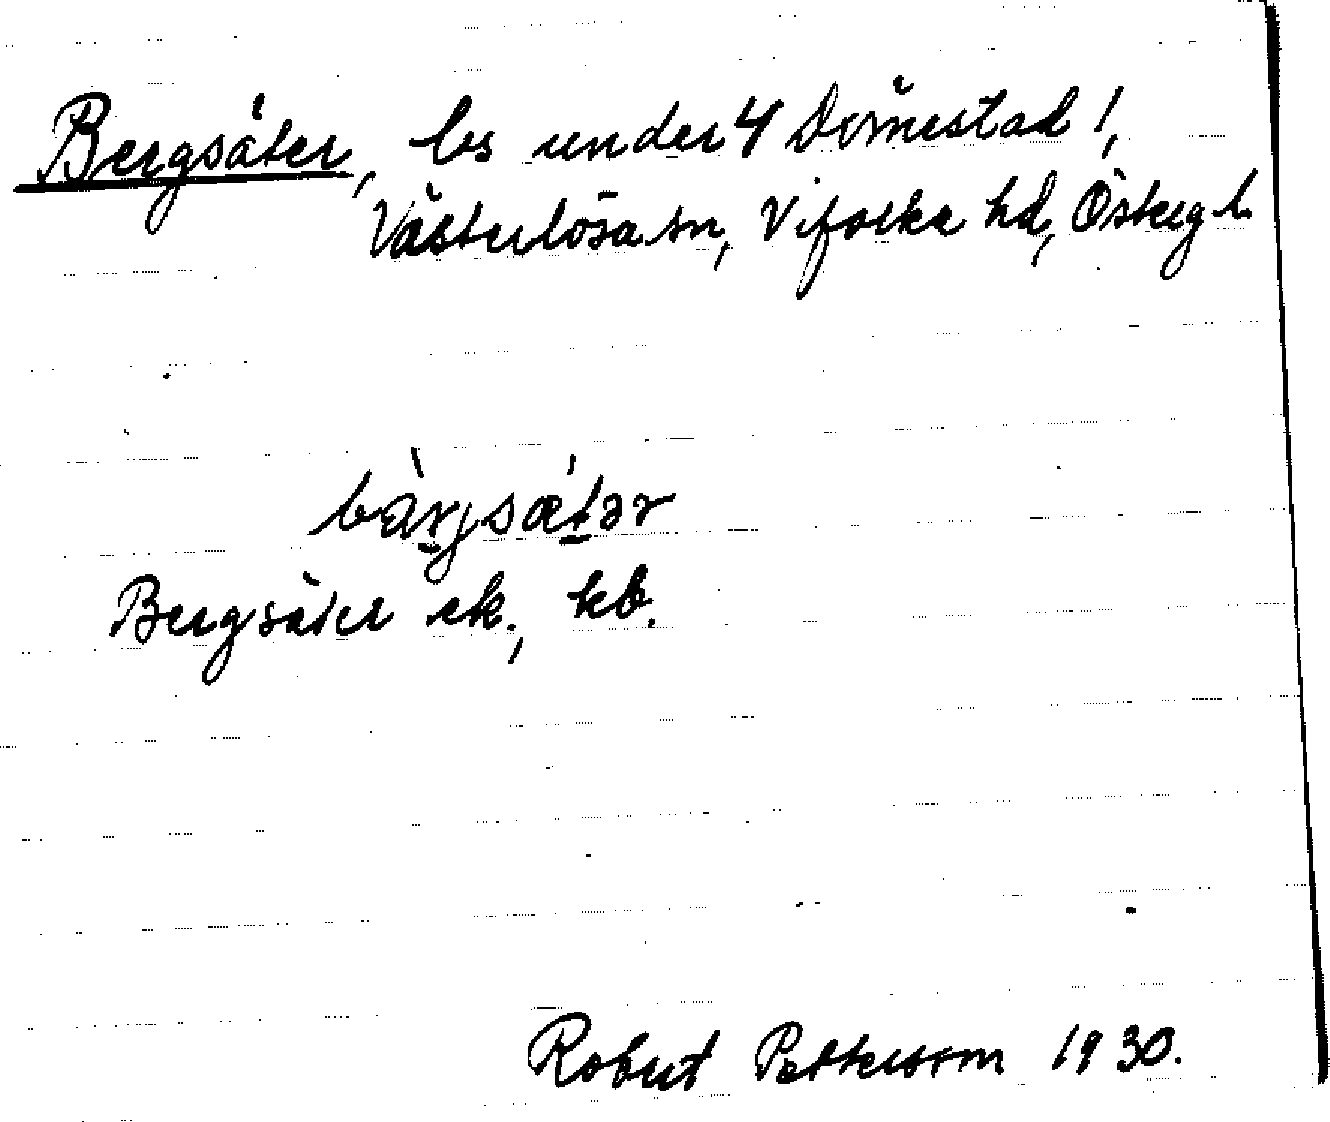 Bergsäter, ls under 4 Dömestad 1,
Västerlösa sn, Vifolka hd, Östergl.
bàrgsǽtər
Bergsäter ek., kb.
Robert Petterson 1930.